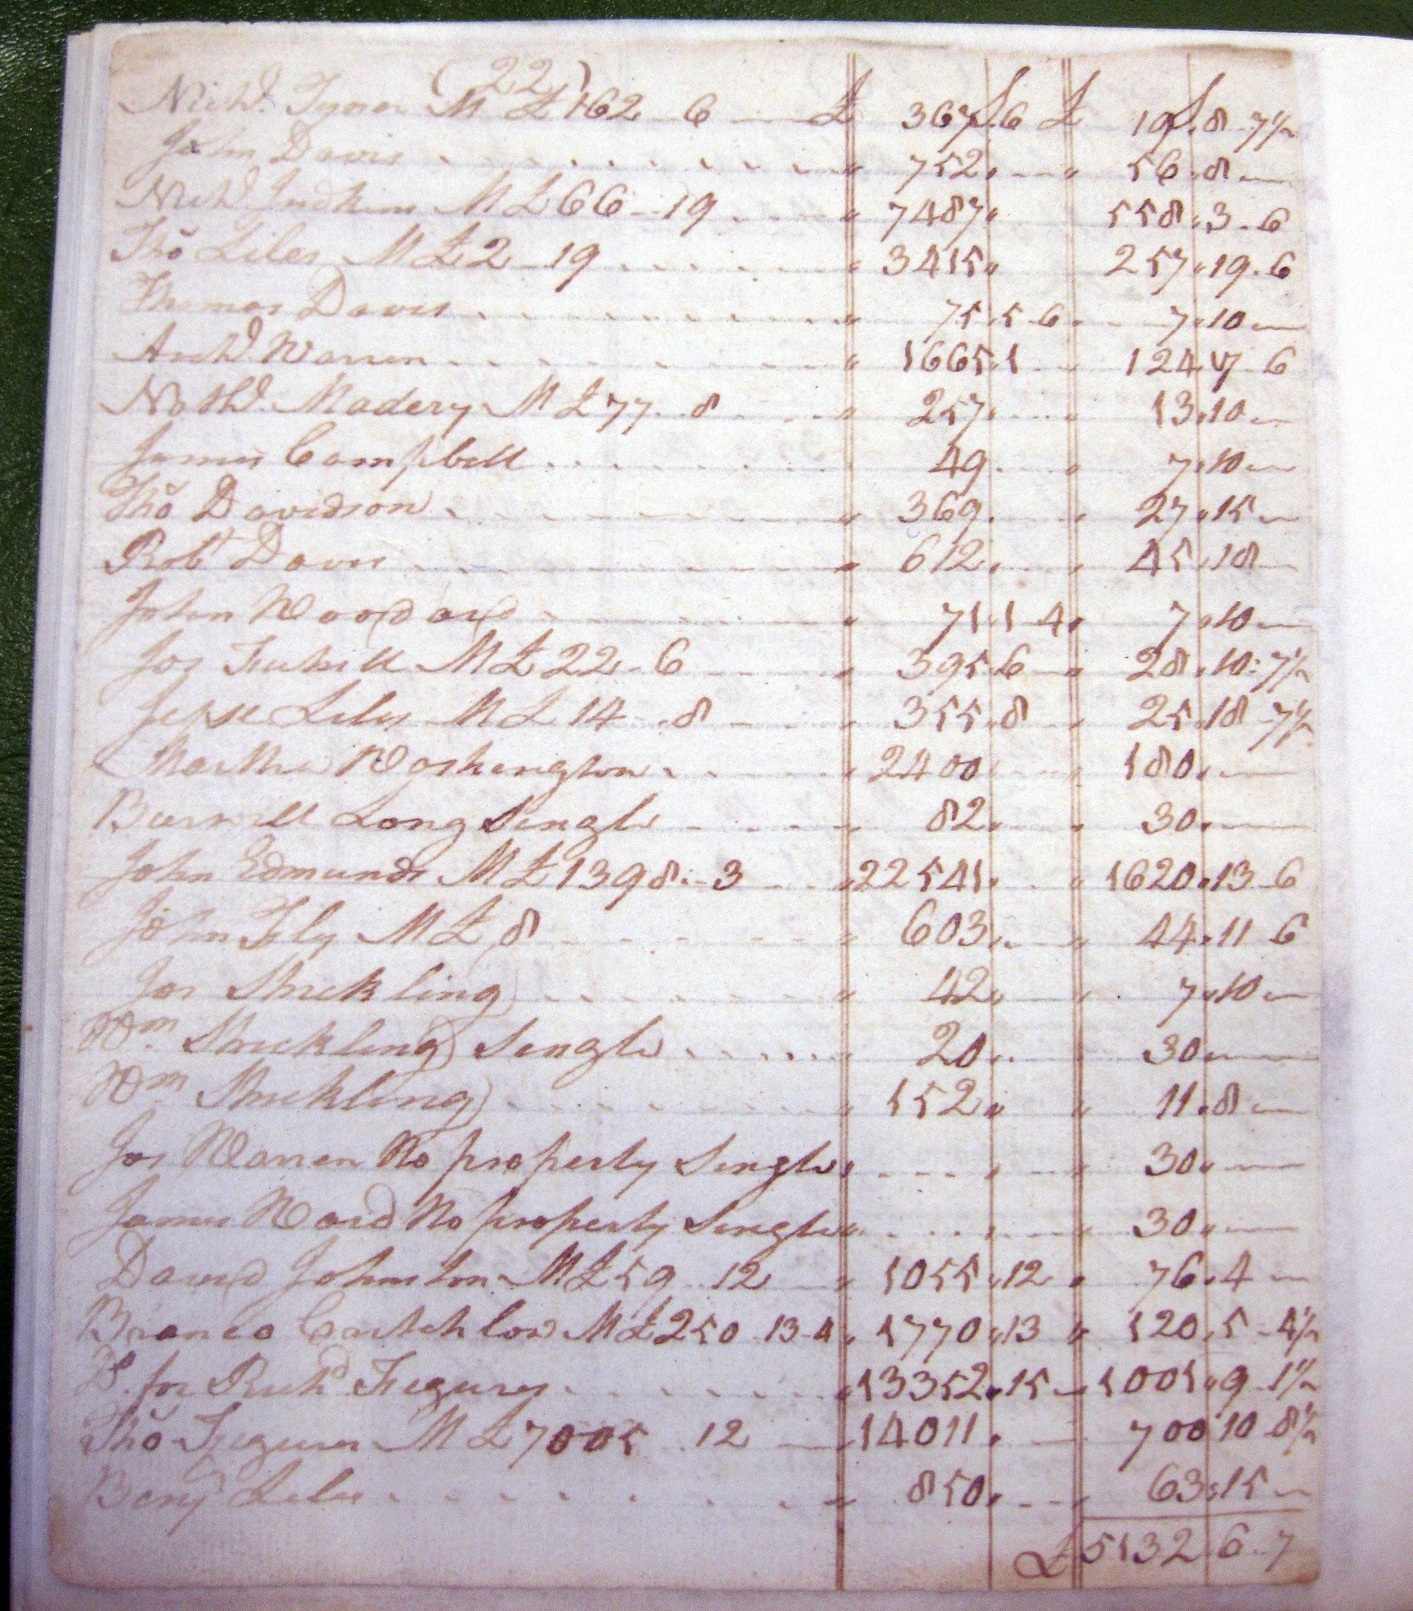 (22)
Nichd. Tyner M £162 6 £ 367 S 6 £ 19 S 8 7½
John Davis " 752 " " 56 " 8
Nichd. Judkins M £66 19 " 7487 " 558 " 3 6
Tho Liles M £2 19 " 3415 " 257 " 19 6
Thomas Davis " 75 5 6 7 " 10
Archd. Warren " 1665 " 1 " 124 " 17 6
Nathl. Madery M £77 8 " 257 " " 13 " 10
James Campbell " 49 " 7 " 10
Tho Davidson " 369 " 27 " 15
Robt Davis " 612 " " 45 " 18
John Woodard " 71 " 1 4 " 7 " 10
Jos M £22 6 " 395 " 6 " 28 " 10 7½
Jesse Liles M £14 8 " 355 " 8 " 25 " 18 7½
Martha Washington " 2400 180 "
Burwell Long Single " 82 " " 30 "
John Edmunds M £1398 3 " 22541 " " 1620 " 13 6
John Fly M £8 " 603 " " 44 " 11 6
Jos Strickling " 42 " " 7 " 10
Wm. Strickling Single " 20 " " 30 "
Wm. Strickling " 152 " " 11 " 8
Jos Warren No property Single " " " 30 "
James Ward No property Single " " 30 "
David Johnston M £59 12 " 1055 " 12 " 76 " 4
M £250 13 4 " 1770 " 13 " 120 " 5 4½
Do. for Richd Figures " 13352 " 15 1001 " 9 1½
Tho Figures M £7005 12 14011 " 700 " 10 8½
Benj Liles " 850 " " 63 " 15
£ 5132 6 7